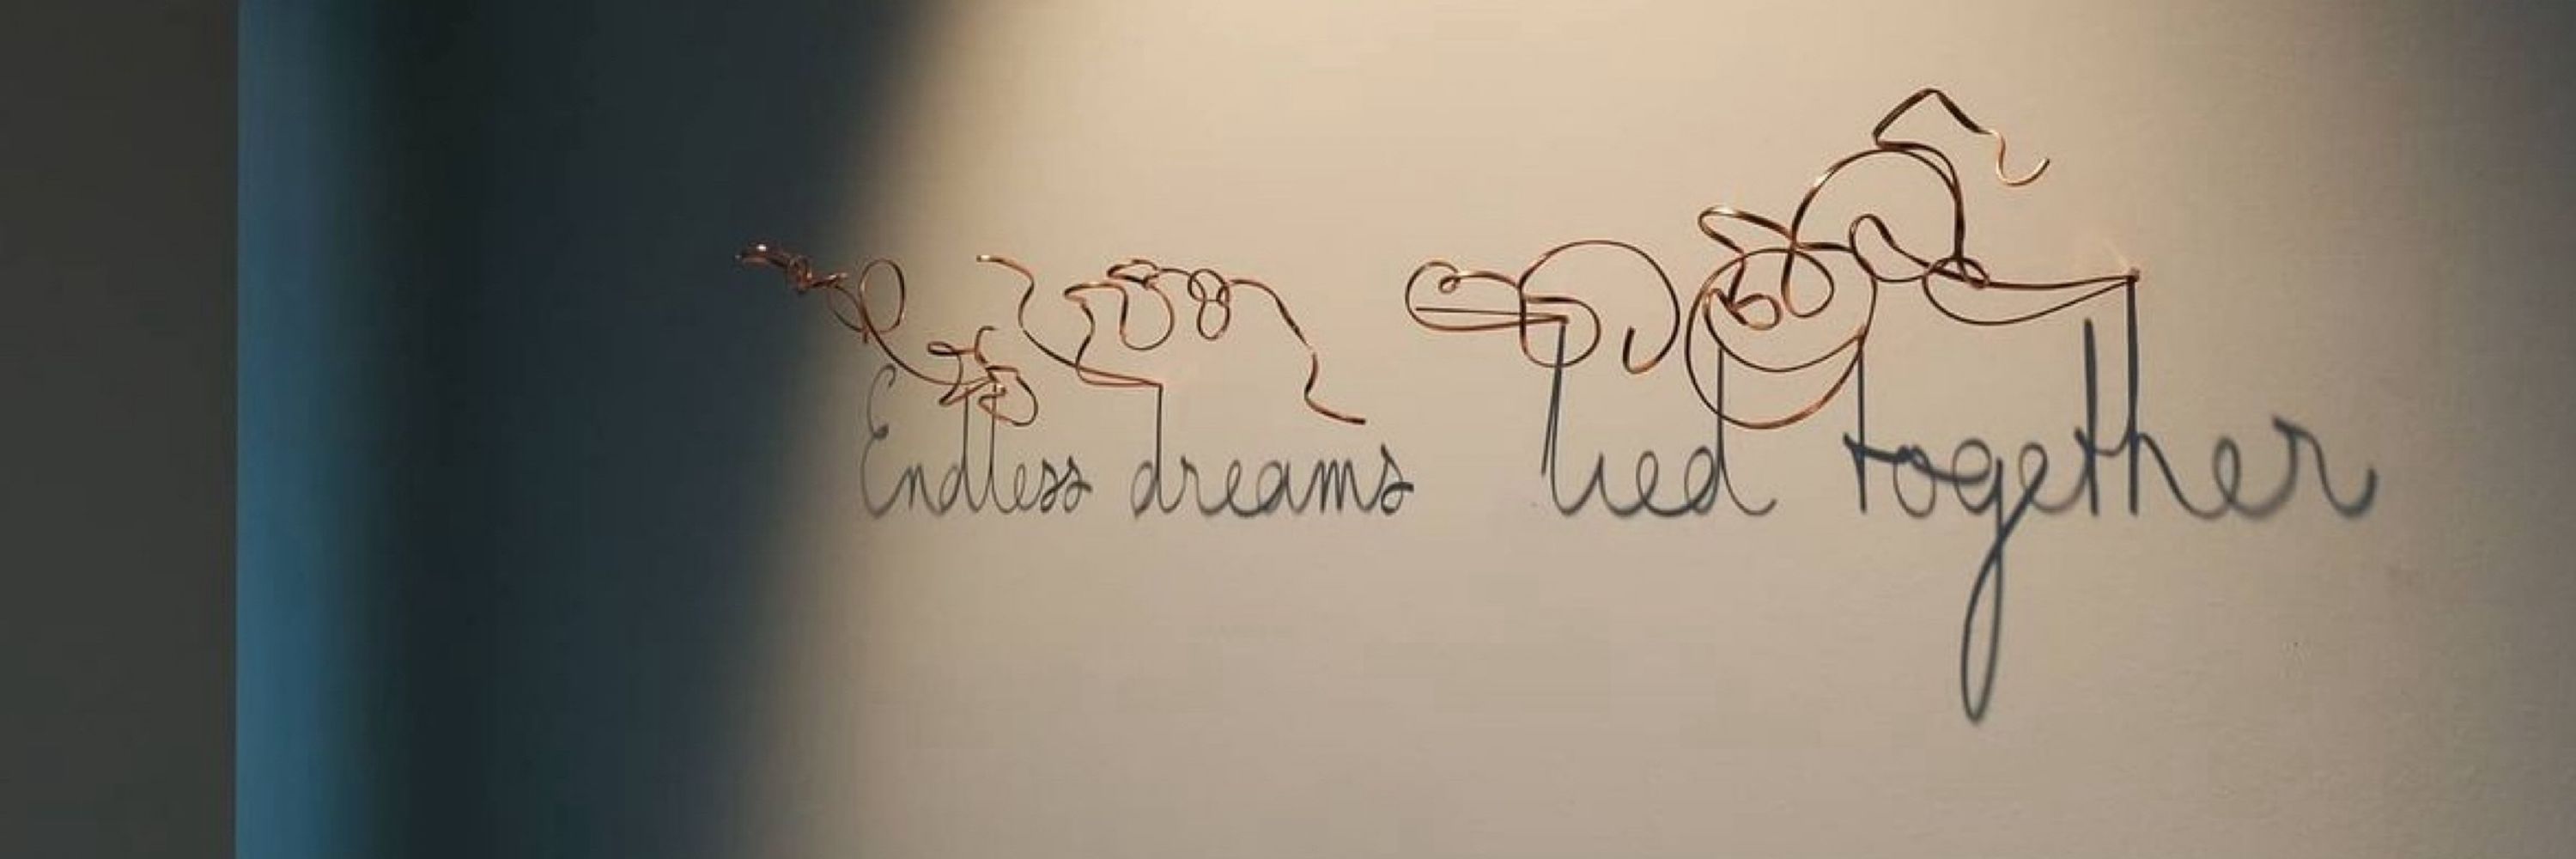 Endless dreams tied together